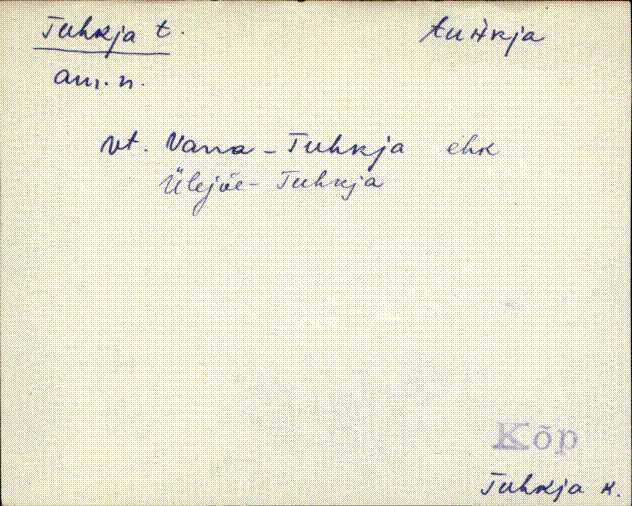 Tuhkja t. tuHkja
am. n.
Vt. Vana-Tuhkja ehk
Ülejõe-Tuhkja
Kõp
Tuhkja k.